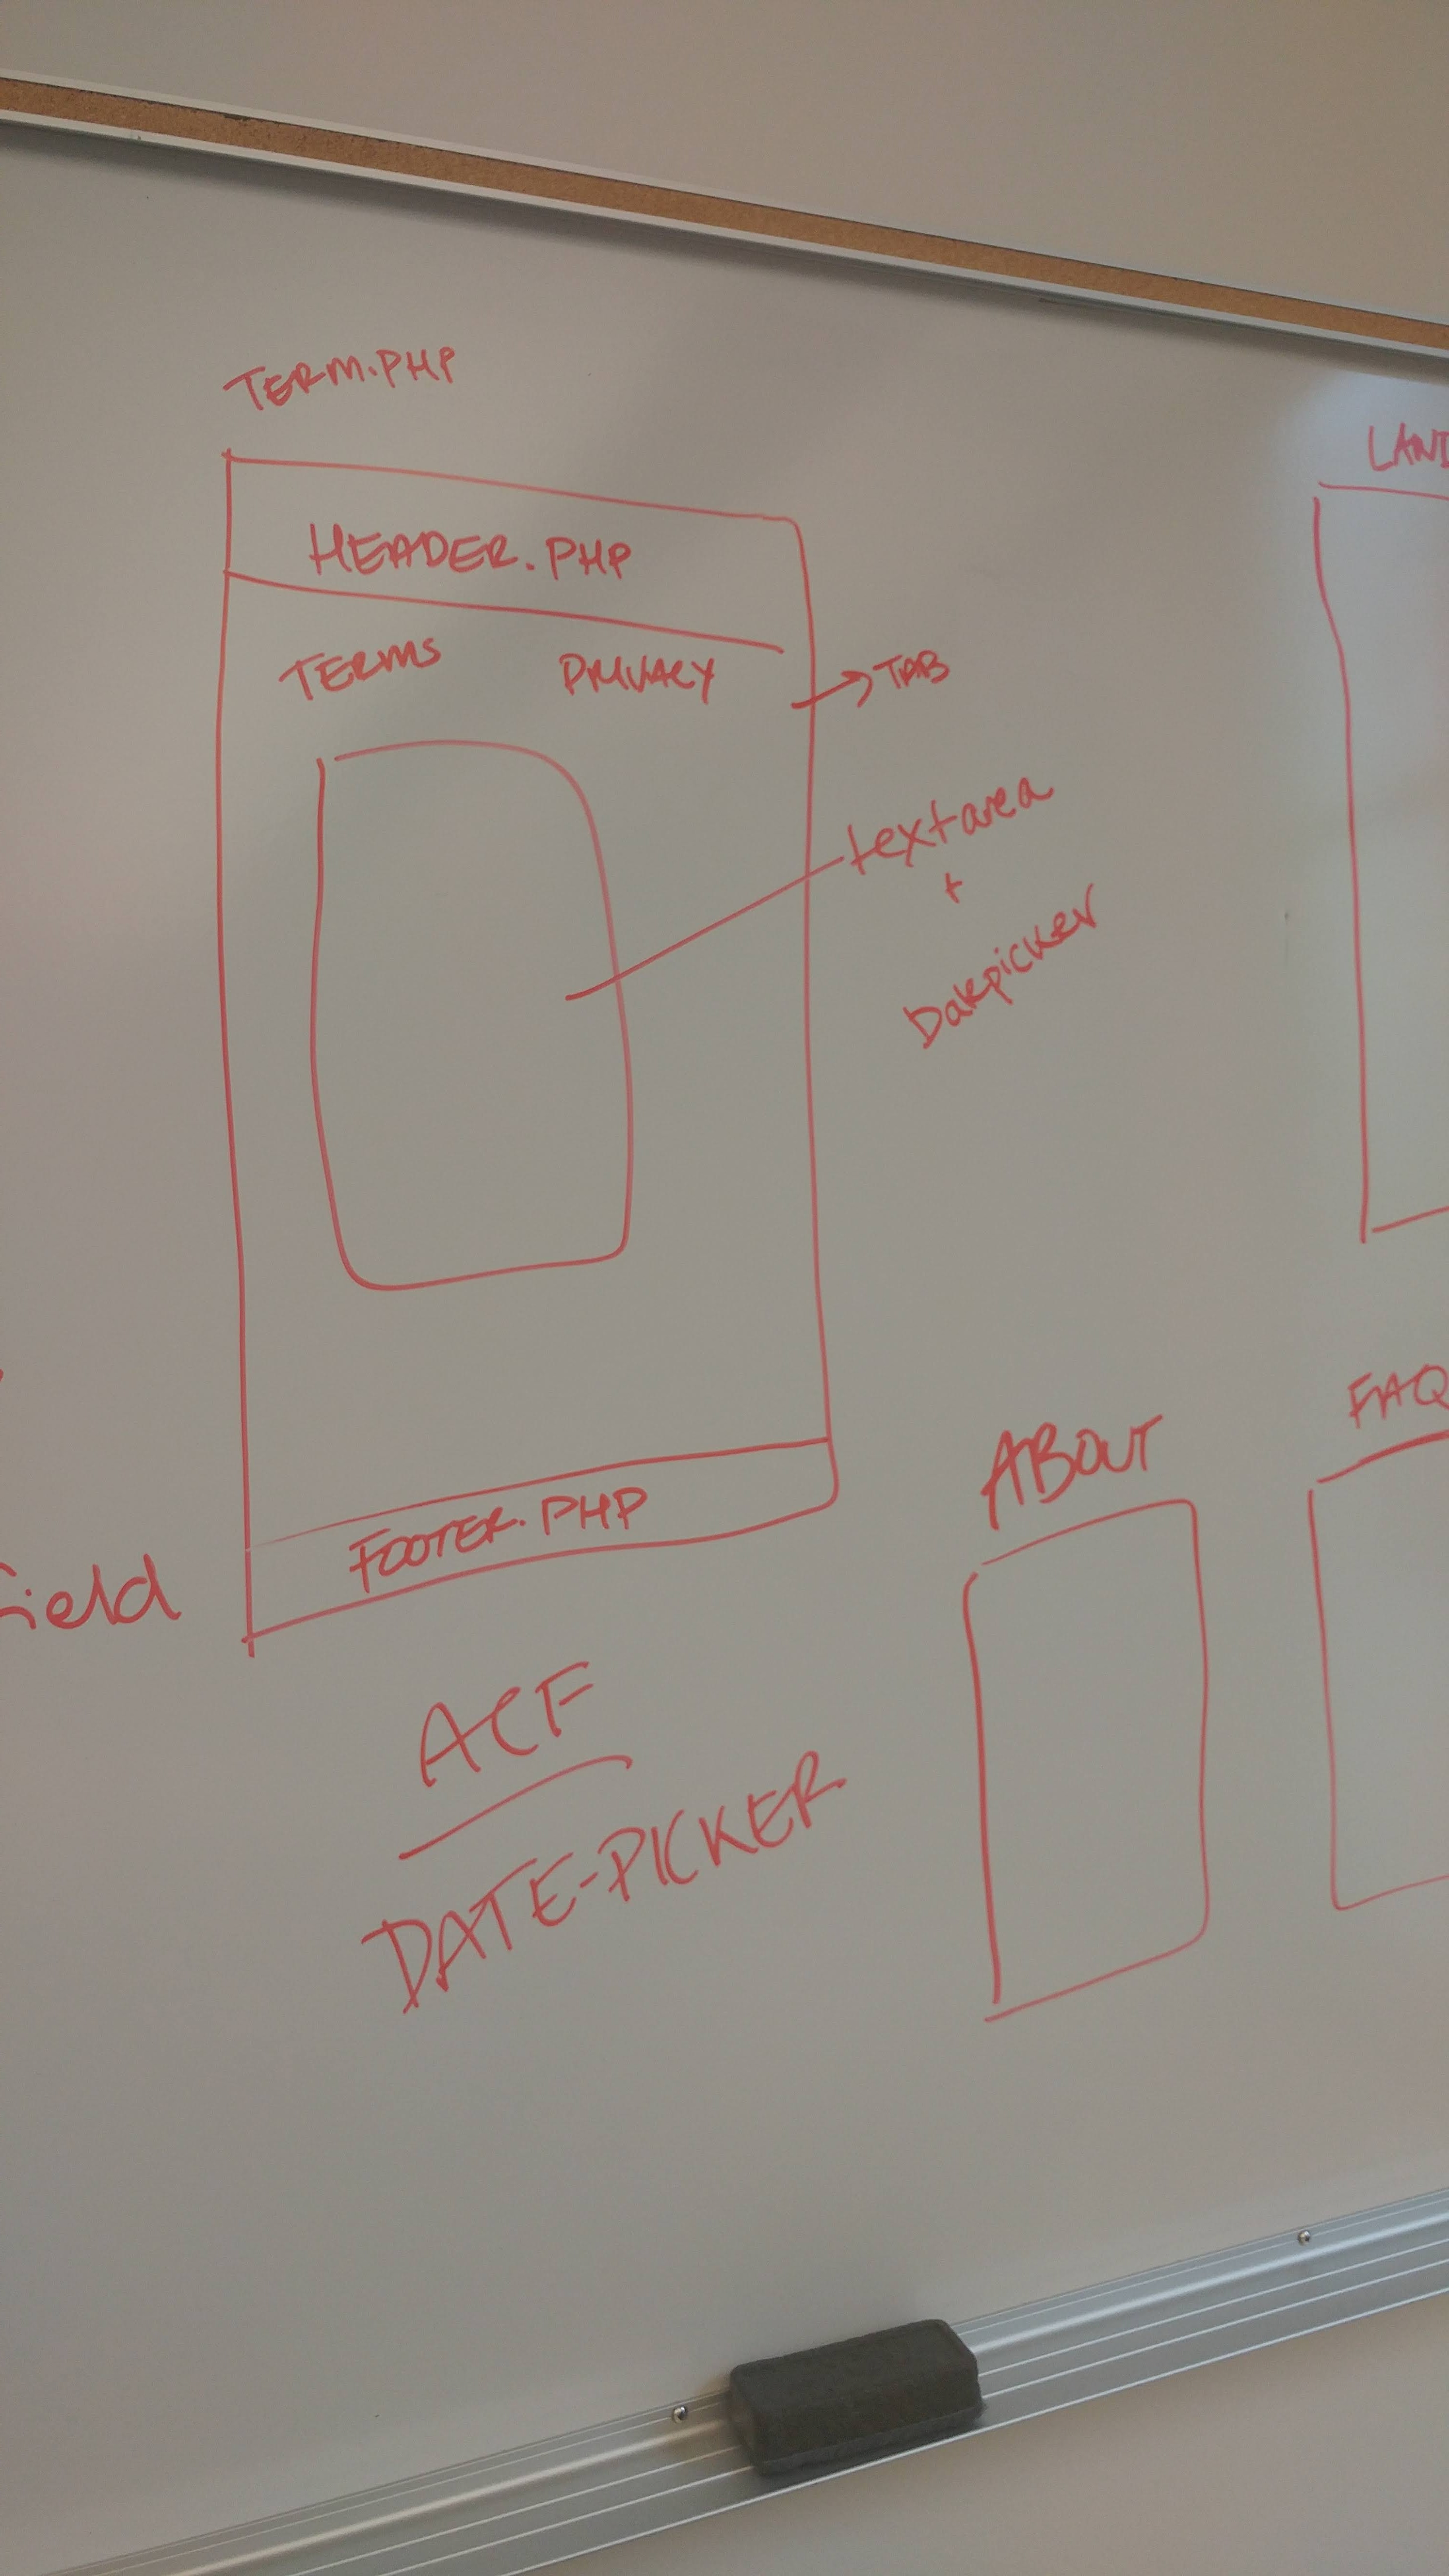 TERM.PHP
HEADER.PHP
TERMS PRIVACY
→ TAB
textarea
+
Datepicker
FOOTER.PHP
ACF
DATE-PICKER
ABOUT
FAQ
LAND
field